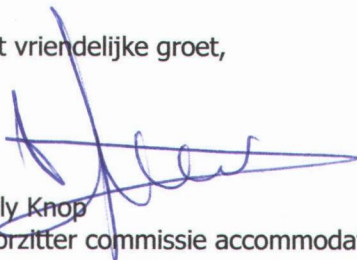 t vriendelijke groet,
ly Knop
orzitter commissie accommodat